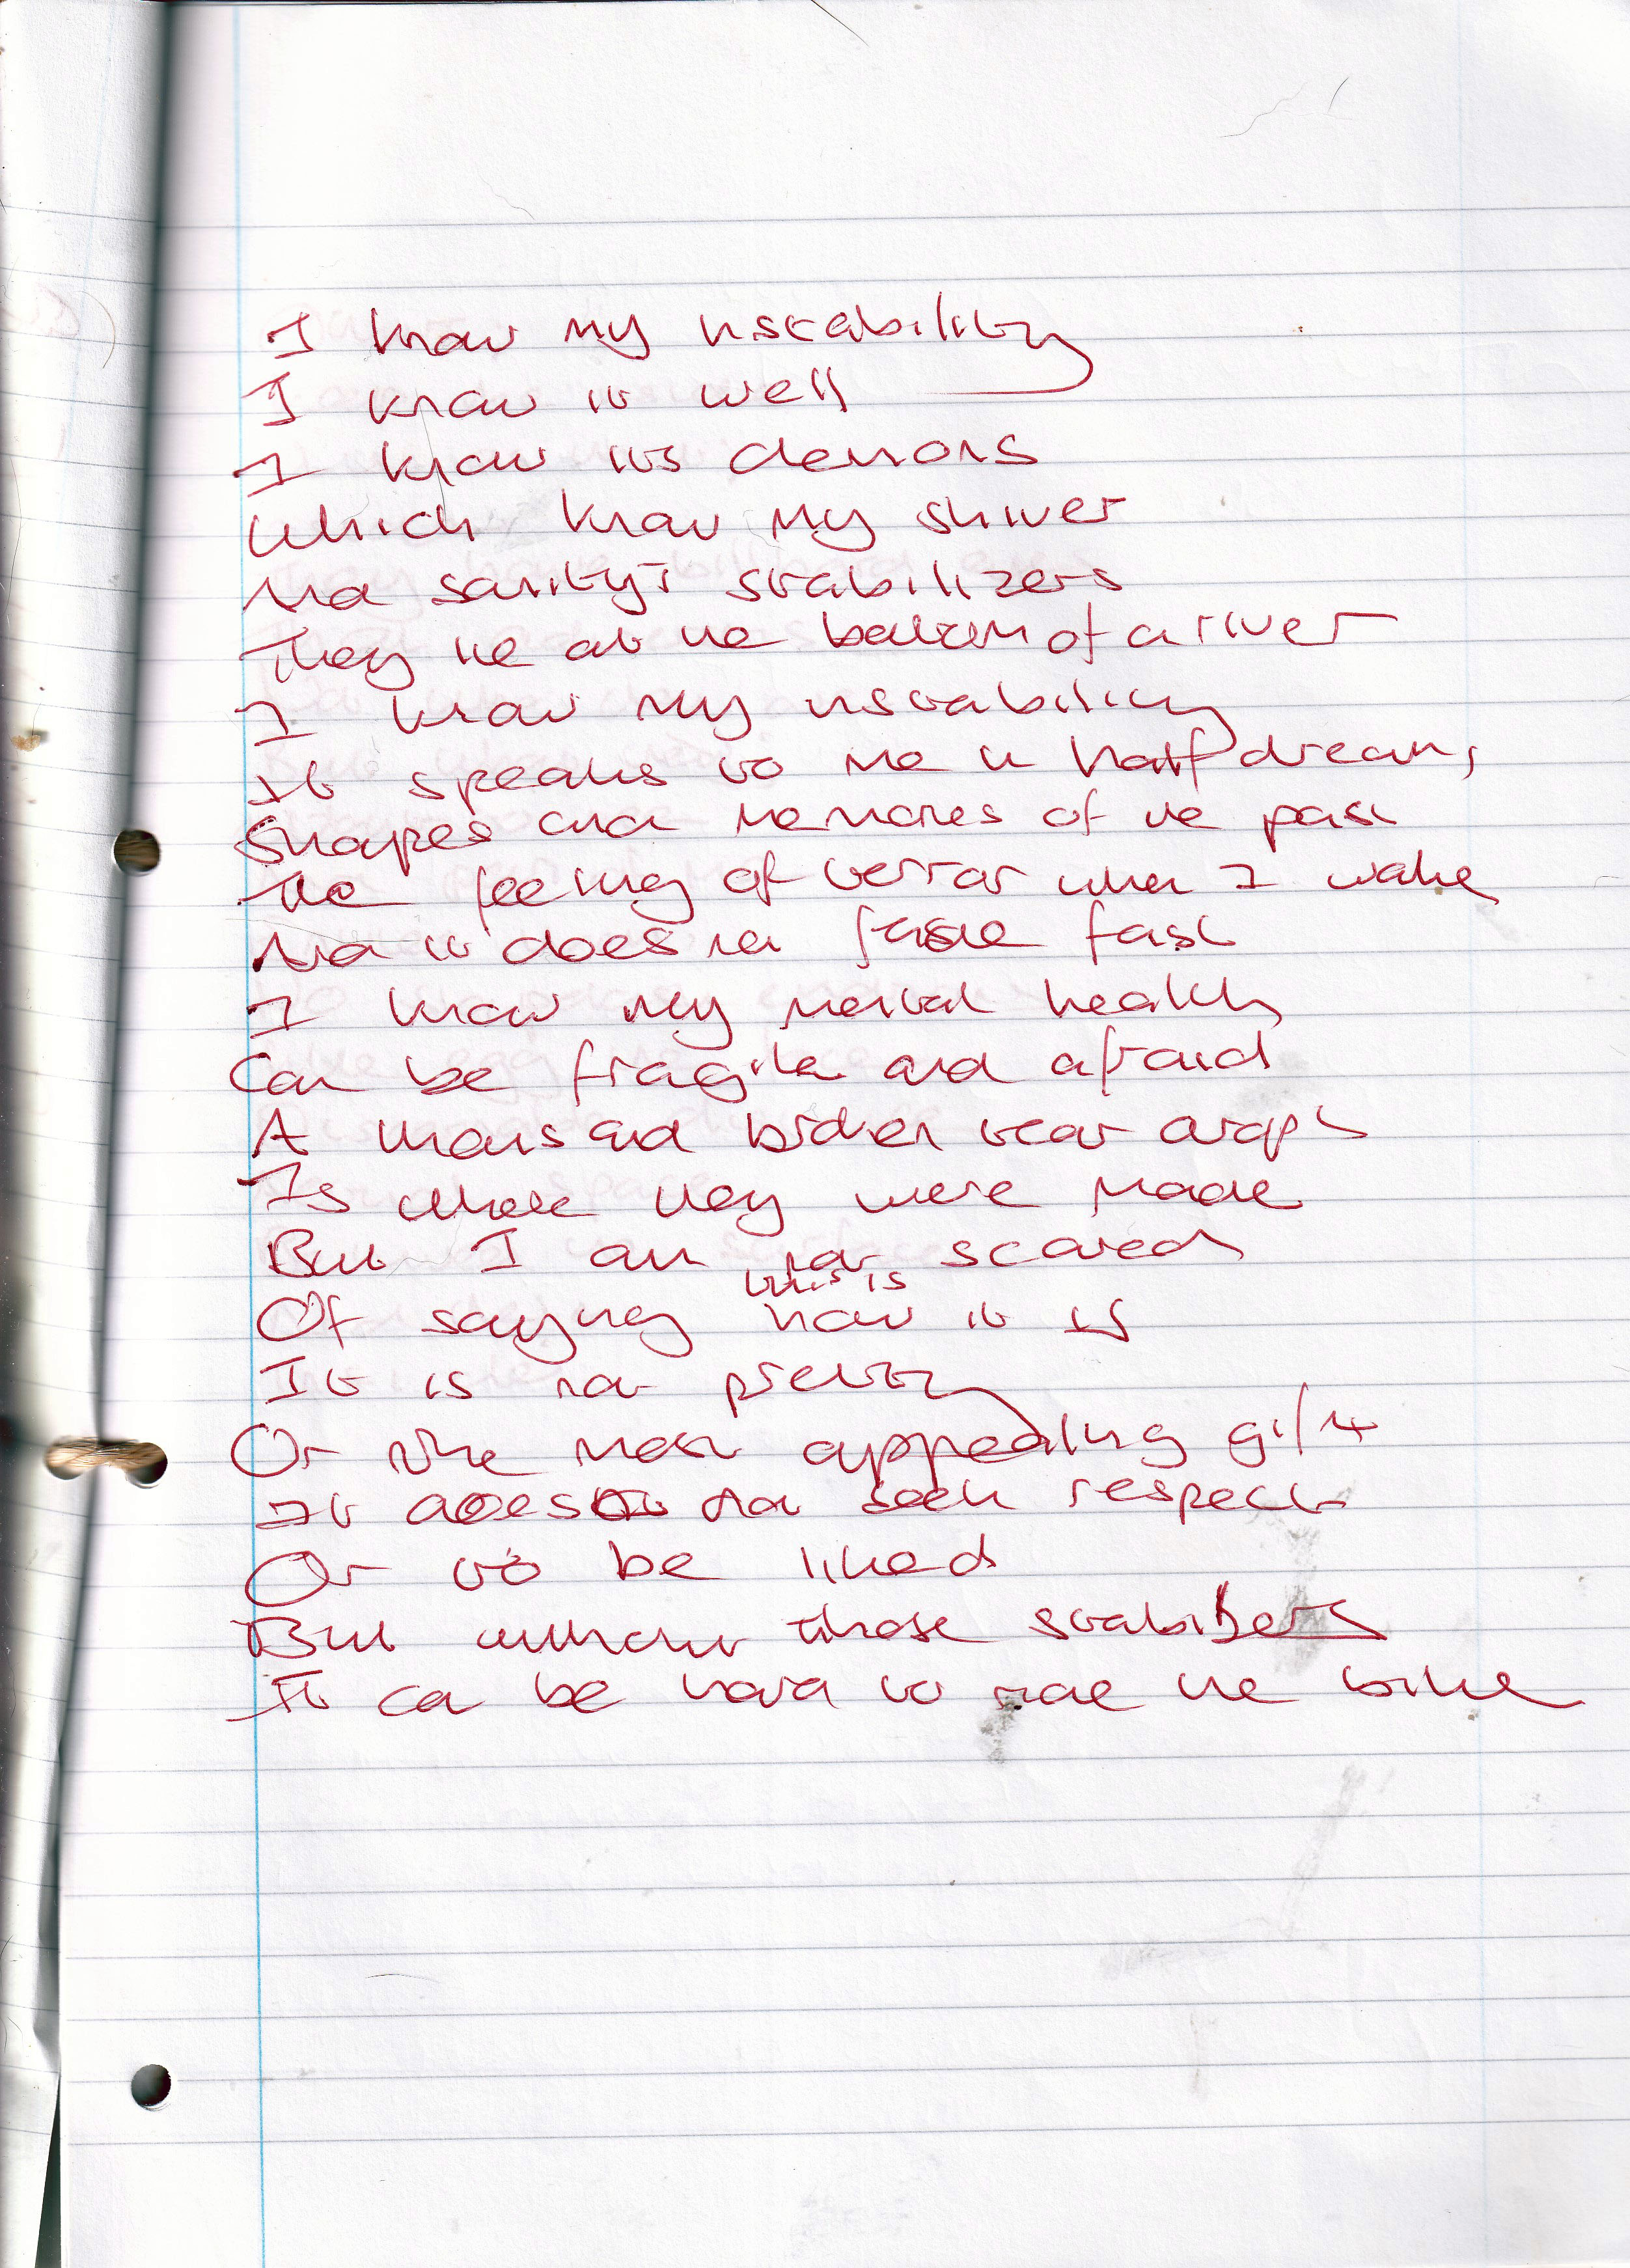 I know my instability
I know it well
I know its demons
Which know my shiver
And sanity's stabilizers
They lie at the bottom of a river
I know my instability
It speaks to me in half dreams
Shapes and memories of the past
The feeling of terror when I wake
And it doesn't fade fast
I know my mental health
Can be fragile and afraid
A thousand broken tear drops
Is where they were made
But I am not scared
this is
Of saying how it is
It is not pretty
Or the most appealing gift
It does not seek respect
Or to be liked
But without those stabilizers
It can be hard to ride the bike